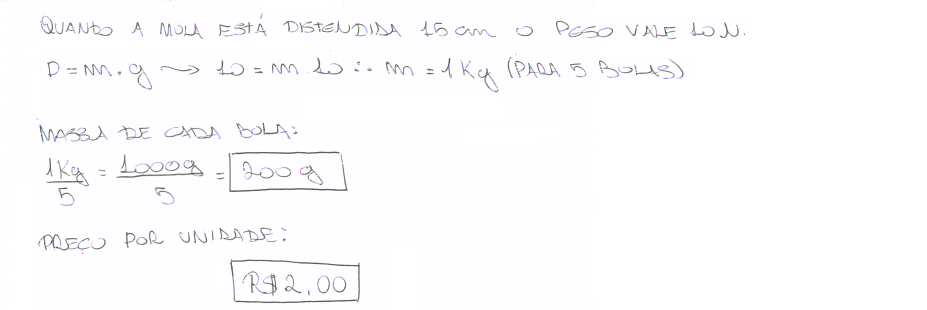 QUANDO A MOLA ESTÁ DISTENDIDA 15 cm O PESO VALE 10 N.
P = m . g → 10 = m . 10 ∴ m = 1 Kg (PARA 5 BOLAS)
MASSA DE CADA BOLA:
1Kg/5 = 1000g/5 = 200 g
PREÇO POR UNIDADE:
R$ 2,00